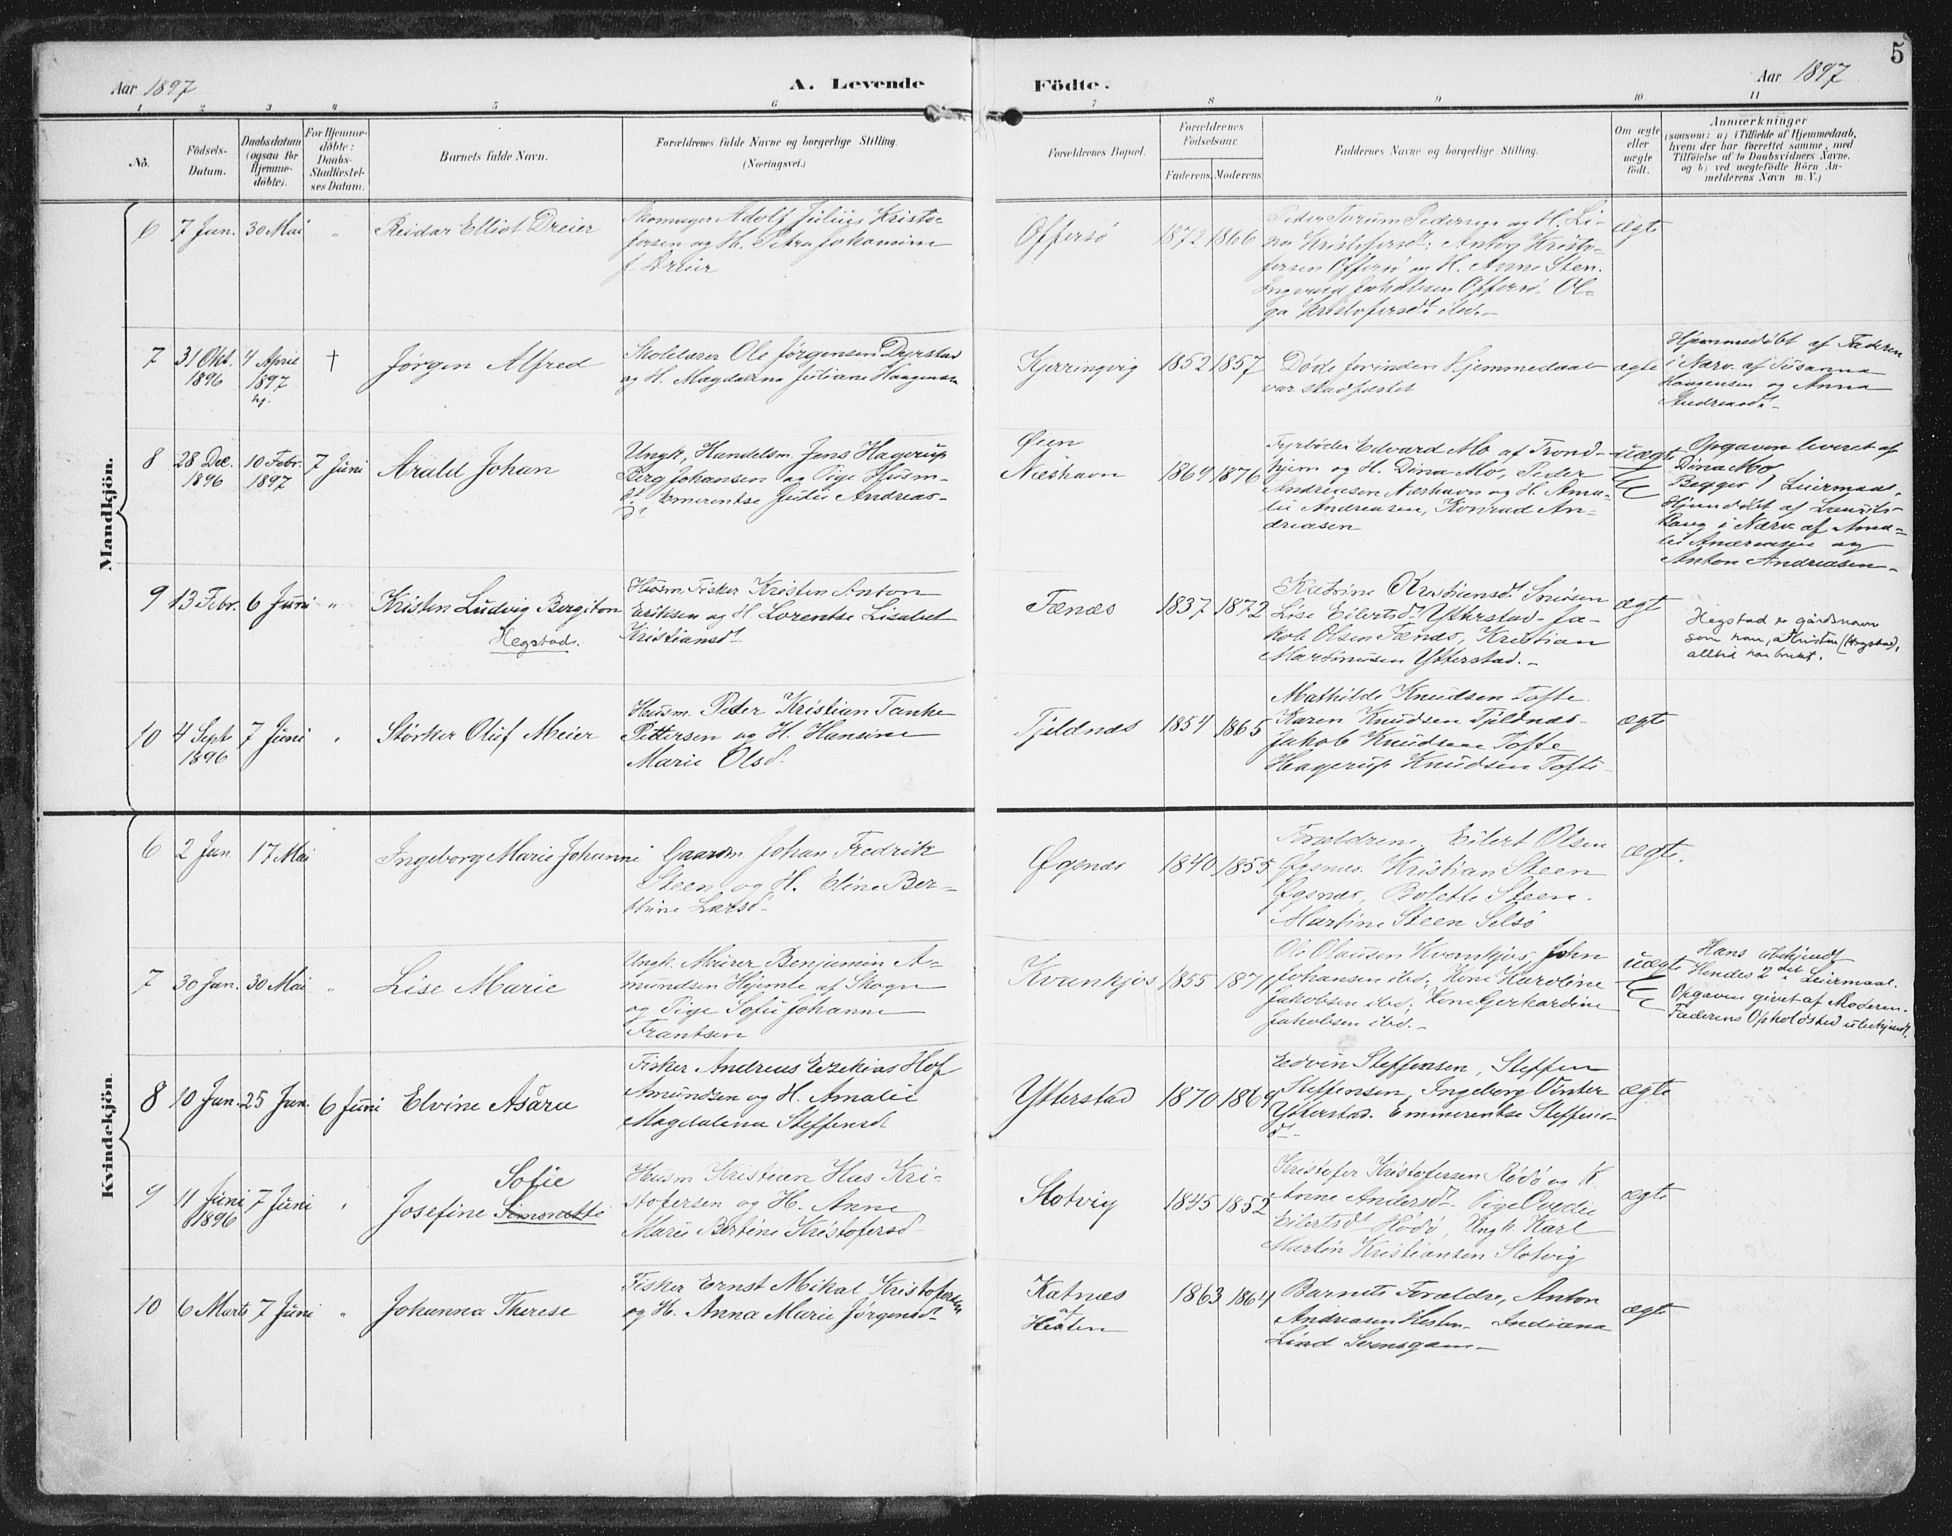 5
Aar 1897
A. Levende
Födte.
Aar 1897
1 2 3 4 5 6 7 8 9 10 11
No.
Födsels-
Datum.
Daabsdatum
(ogsaa for
Hjemme-
döbte).
For Hjemme-
döbte:
Daabs-
Stadfæstel-
ses Datum.
Barnets fulde Navn.
Forældrenes fulde Navne og borgerlige Stilling.
(Næringsvei.)
Forældrenes Bopæl.
Forældrenes
Födselsaar.
Faderens. Moderens.
Faddernes Navne og borgerlige Stilling.
Om ægte
eller
uægte
födt.
Anmærkninger
(saasom: a) i Tilfælde af Hjemmedaab,
hvem der har forrettet samme, med
Tilföielse af to Daabsvidners Navne.
og b) ved uægtefödte Börn An-
melderens Navn m. V.)
Mandkjön.
6 7 Jan. 30 Mai " Reidar Elliot Dreier
Skomager Adolf Julius Kristo-
fersen og H. Petra Johamine
f. Dreier
Offersö 1872 1866
Peder Torum Pedersen og H. Li-
na Kristofersdt; Anton Kristo-
fersen Offersö og H. Anne Sten.
Ingvard Jakobsen Offersö. Ol-
ga Kristofersdt ibd.
ægte
7 31 Okt. 1896 4 April 1897 hj. † Jørgen Alfred
Skolelærer Ole Jørgensen Dyrstad
og H. Magdalena Juliane Haagensen
Kjerringvig 1852 1857
Døde forinden Hjemmedaab
var stadfæstet
ægte
Hjemmedøbt af Faderen
i Nærv. af Susanna
Haagensen og Anna
Andreasdt.
8 28 Dec. 1896 10 Febr. 1897 7 Juni Arald Johan
Ungk, Handelsm. Jens Hagerup
Berg Johansen og Pige Husm-
dt Emerentse Julie Andreas-
dt
Øien
Næshavn 1864 1876
Fyrbøder Edvard Mo af Trond-
hjem og H. Dina Mo, Peder
Andreasen Næshavn og H. Ama-
lie Andreasen, Konrad An-
dreasen
uægte
Opgaven leveret af
Dina Mo
Begges 1 Leiermaal.
Hjemdøbt af
i Nærv. af Ama-
lie Andreasen og
Anton Andreasen
9 13 Febr. 6 Juni " Kristen Ludvig Bergiton
Hegstad.
Husm. Fisker Kristen Anton
Eriksen og H. Lorentse Lisabet
Kristiansdt
Tænæs 1837 1872
Katrine Kristiansdt
Lise Eilertsdt Ytterstad. Ja-
kob Olsen Tænæs, Kristian
Martinusen Ytterstad.
ægte
Hegstad er gårdsnavn
som han, Kristen (Hegstad),
alltid har brukt.
10 4 Sept 1896 7 Juni " Størker Oluf Meier
Husm. Peder Kristian Tanke
Pettersen og H. Hansine
Marie Olsd.
Tjeldnæs 1854 1865
Mathilde Knudsen Tofte.
Karen Knudsen Tjeldnæs.
Jakob Knudsen Tofte
Hagerup Knudsen Tofte
ægte
Kvindekjön.
6 2 Jan 17 Mai Ingeborg Marie Johanne
Gaardm. Johan Fredrik
Steen og H. Eline Ber-
thine Larsd.
Øgsnæs 1840 1855
Forældrene, Eilert Olsen
Øgsnæs. Kristian Steen
Øgsnæs, Bolette Steen.
Martine Steen Selsö
ægte.
7 30 Jan. 30 Mai " Lise Marie
Ungk. Murer Benjamin A-
mundsen Hjemle af Skogn
og Pige Sofie Johanne
Frantsen
Kvankjos 1855 1871
Ole Olausen Kvankjos, John
Johansen ibd. Kine Karoline
Jakobsen ibd, Kine Gerhardine
Jakobsen ibd.
uægte
Hans ubekjendt
Hendes 2det Leiermaal.
Opgaven givet af Moderen.
Faderens Opholdsted ubekjendt.
8 10 Jan. 25 Jan. 6 Juni Elvine Asara
Fisker Andreas Ezekias Hof
Amundsen og H. Amalie
Magdalena Steffensdt
Ytterstad 1870 1869
Edvin Steffensen, Steffen
Steffensen, Ingeborg Vinter
Ytterstad. Emmerentse Steffens-
dt
ægte
9 11 Juni 1896 7 Juni " Josefine Simonette
Sofie
Husm Kristian Has Kri-
stofersen og H. Anne
Marie Bertine Kristofersd
Slotvig 1845 1852
Kristofer Kristofersen Rödö og K.
Anne Andersdt. Pige Ovedie
Eilertsdt Rödö, Ungk Karl
Martin Kristiansen Slotvig
ægte
10 6 Marts 7 Juni " Johanna Therese
Fisker Ernst Mikal Kristofersen
og H. Anna Marie Jørgensdt
Katnæs
af
Hesten 1863 1864
Barnets Forældre, Anton
Andreasen Hesten. Indiana
Lind
ægte